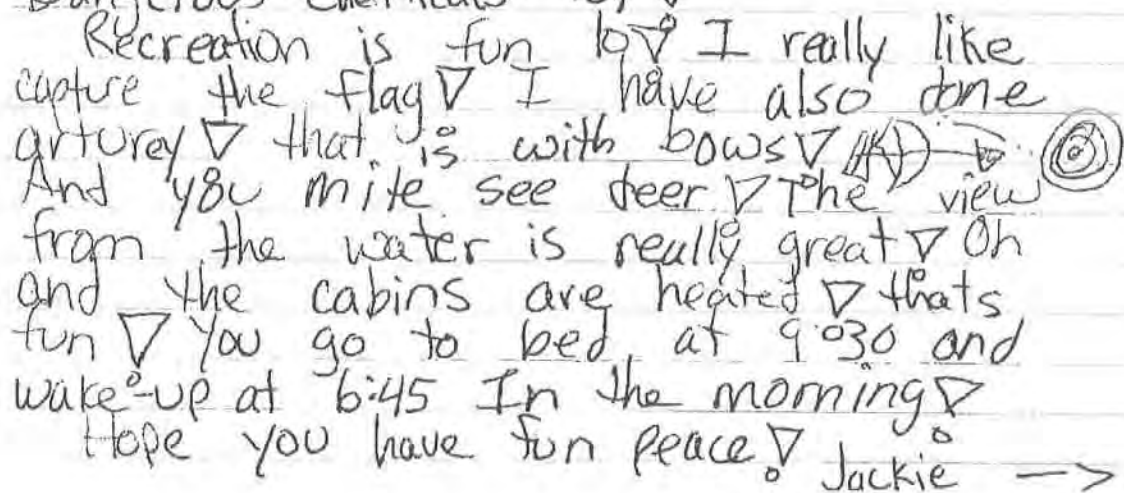 Dangerous Chemicals
Recreation is fun to! I really like
capture the flag! I have also done
arturey! that is with bows!
And you mite see deer! The view
from the water is really great! Oh
and the cabins are heated! thats
fun! You go to bed at 9:30 and
wake-up at 6:45 In the morning!
Hope you have fun peace! Jackie —>